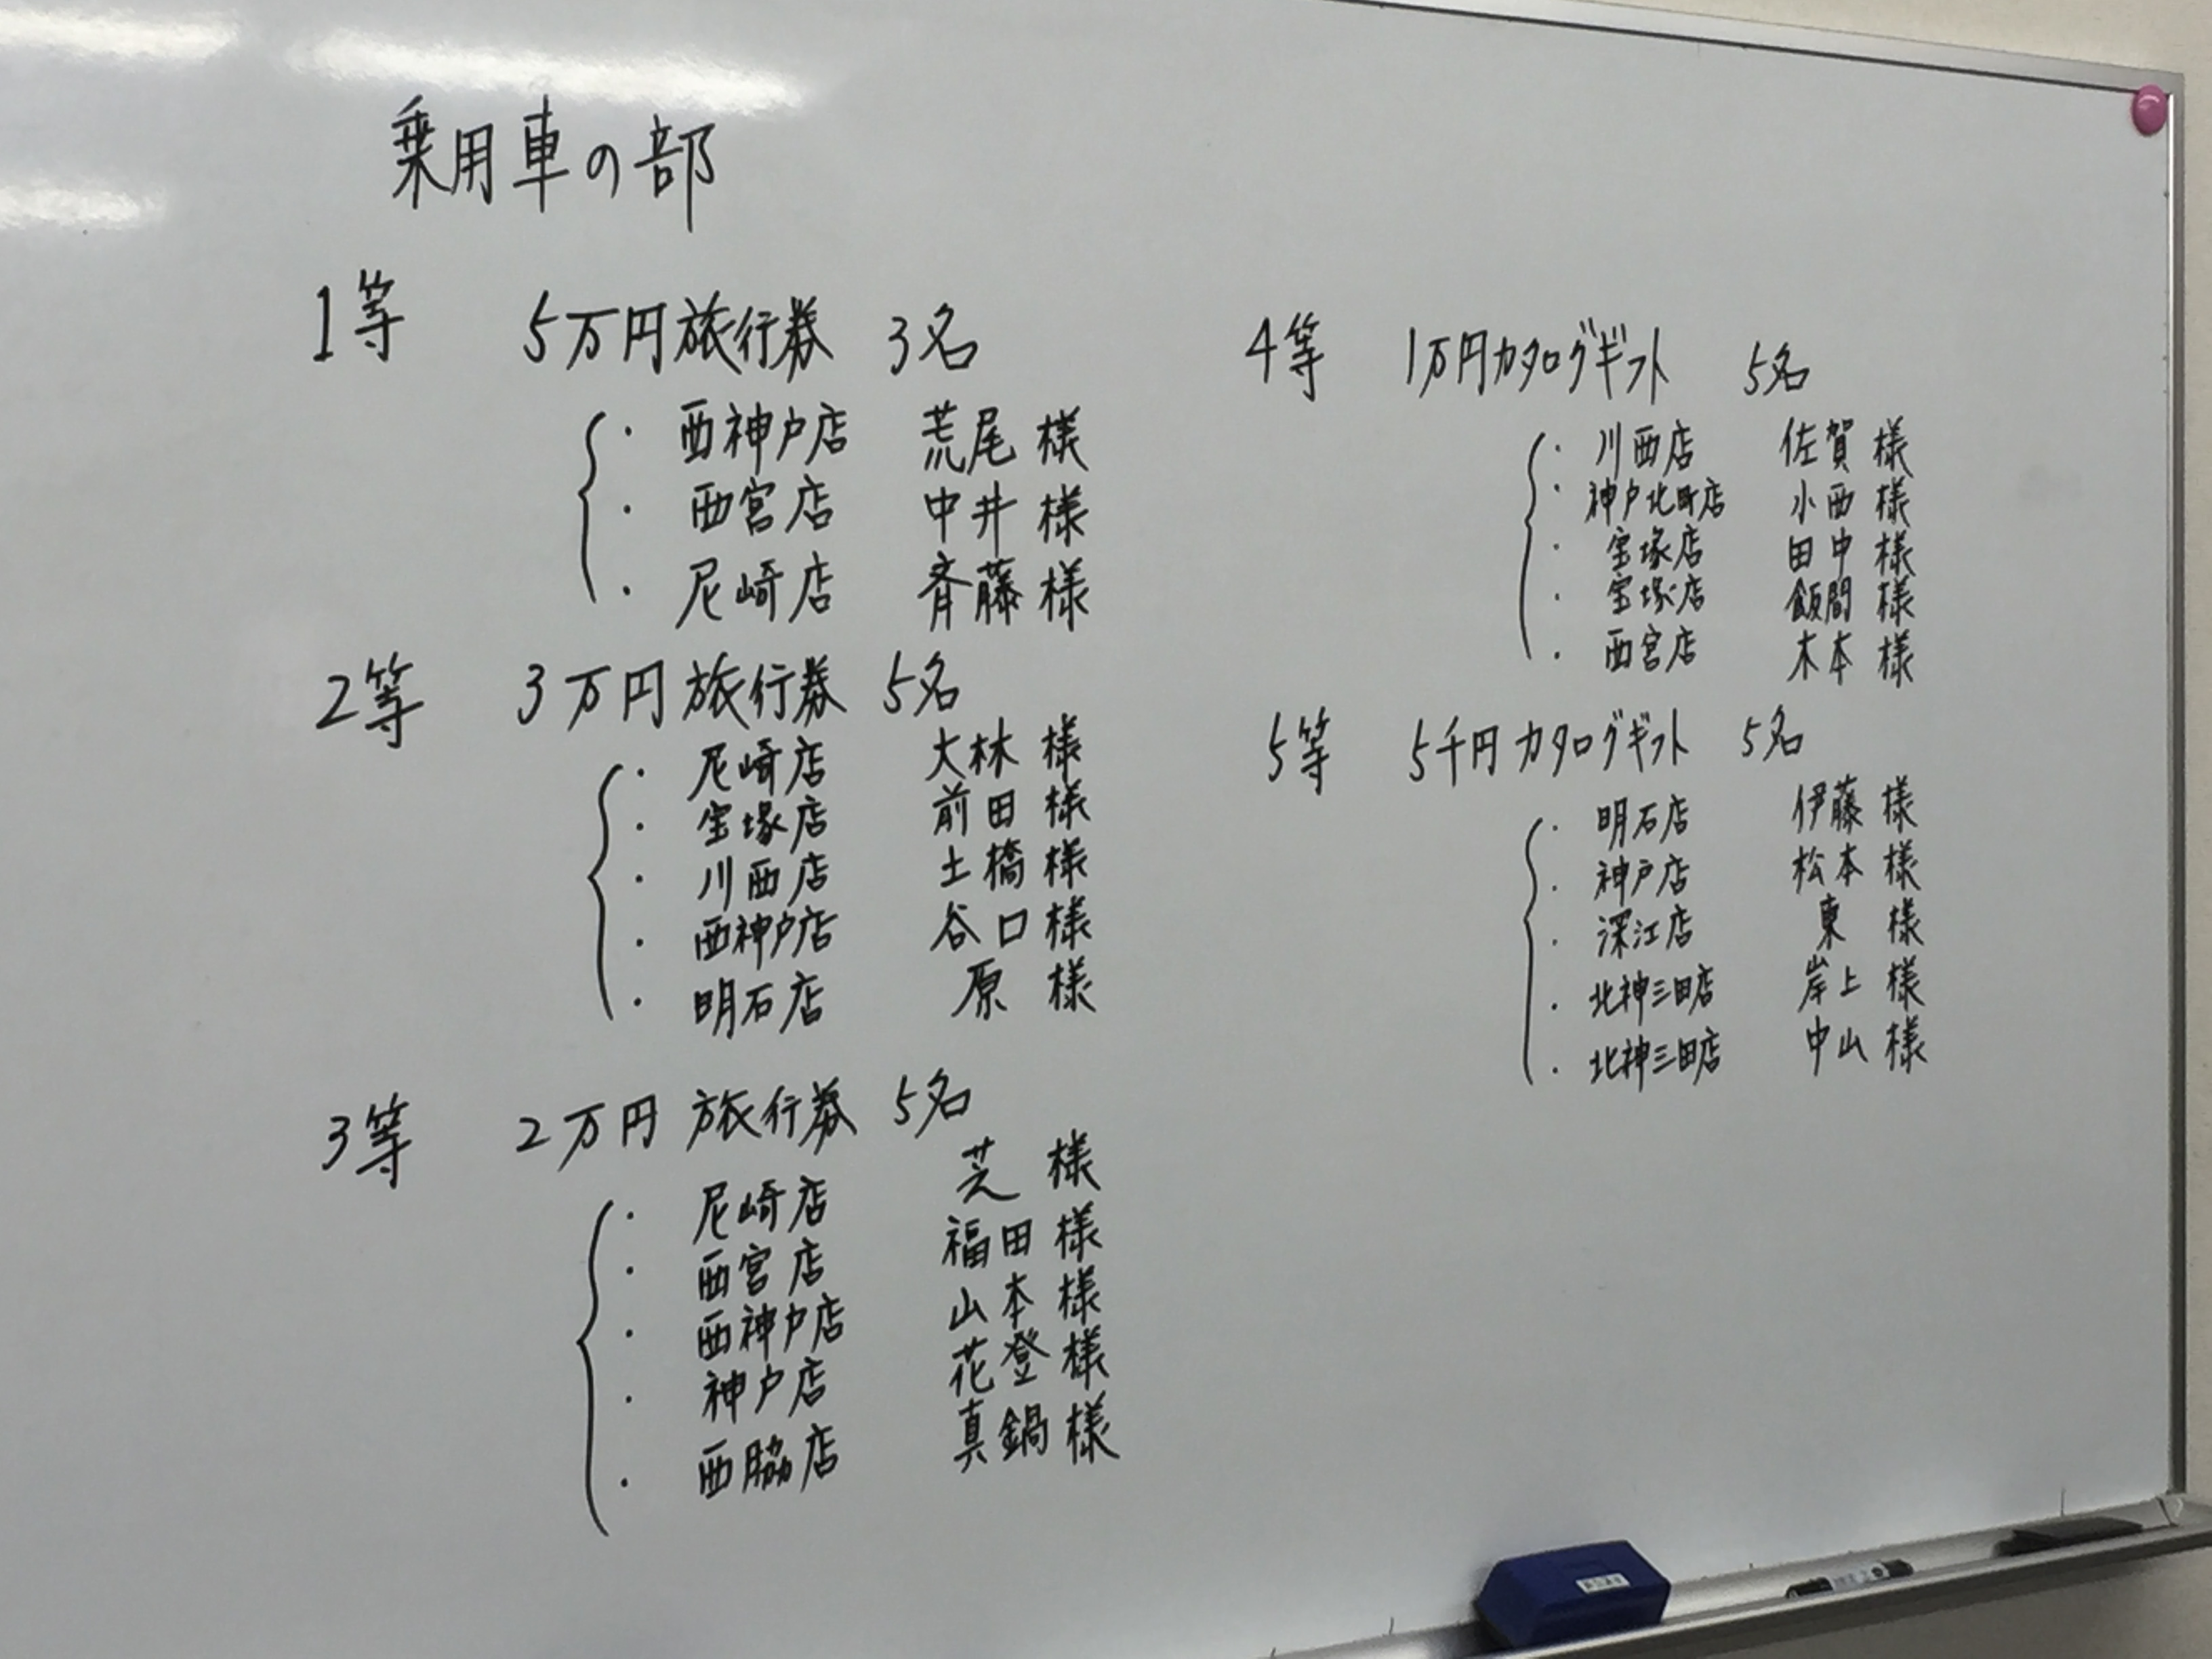 乗用車の部
1等 5万円旅行券 3名
・ 西神戸店 荒尾 様
・ 西宮店 中井 様
・ 尼崎店 斉藤 様
2等 3万円旅行券 5名
・ 尼崎店 大林 様
・ 宝塚店 前田 様
・ 川西店 土橋 様
・ 西神戸店 谷口 様
・ 明石店 原 様
3等 2万円旅行券 5名
・ 尼崎店 芝 様
・ 西宮店 福田 様
・ 西神戸店 山本 様
・ 神戸店 花登 様
・ 西脇店 真鍋 様
4等 1万円カタログギフト 5名
・ 川西店 佐賀 様
・ 神戸北町店 小西 様
・ 宝塚店 田中 様
・ 宝塚店 飯間 様
・ 西宮店 木本 様
5等 5千円カタログギフト 5名
・ 明石店 伊藤 様
・ 神戸店 松本 様
・ 深江店 東 様
・ 北神三田店 岸上 様
・ 北神三田店 中山 様